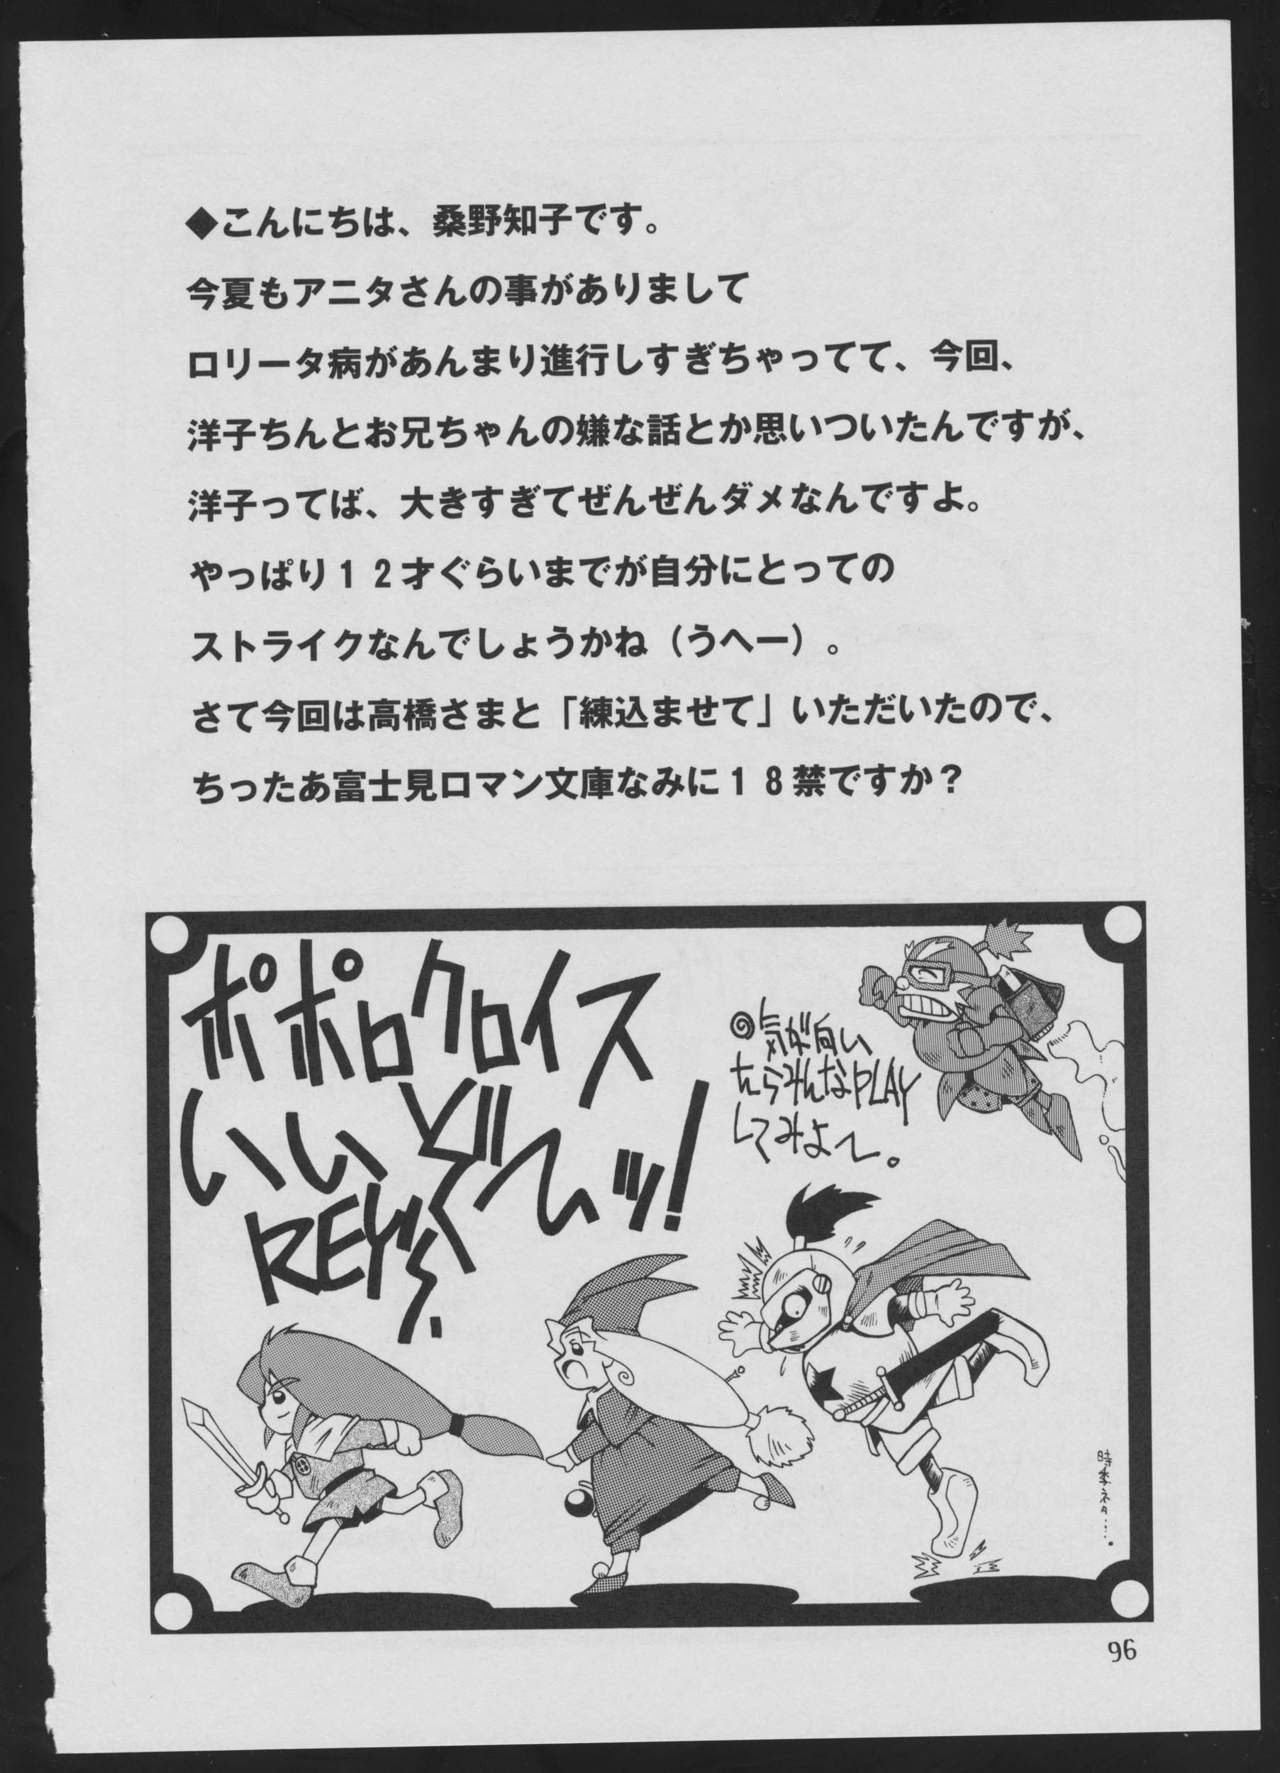 ◆こんにちは、桑野知子です。
今夏もアニタさんの事がありまして
ロリータ病があんまり進行しすぎちゃってて、今回、
洋子ちんとお兄ちゃんの嫌な話とか思いついたんですが、
洋子ってば、大きすぎてぜんぜんダメなんですよ。
やっぱり１２才ぐらいまでが自分にとっての
ストライクなんでしょうかね（うへー）。
さて今回は高橋さまと「練込ませて」いただいたので、
ちったあ富士見ロマン文庫なみに１８禁ですか？
ポポロクロイス
いいぞーッ!
REY's
気が向い
たらみんなPLAY
してみよ～。
時季ネタ…。
96